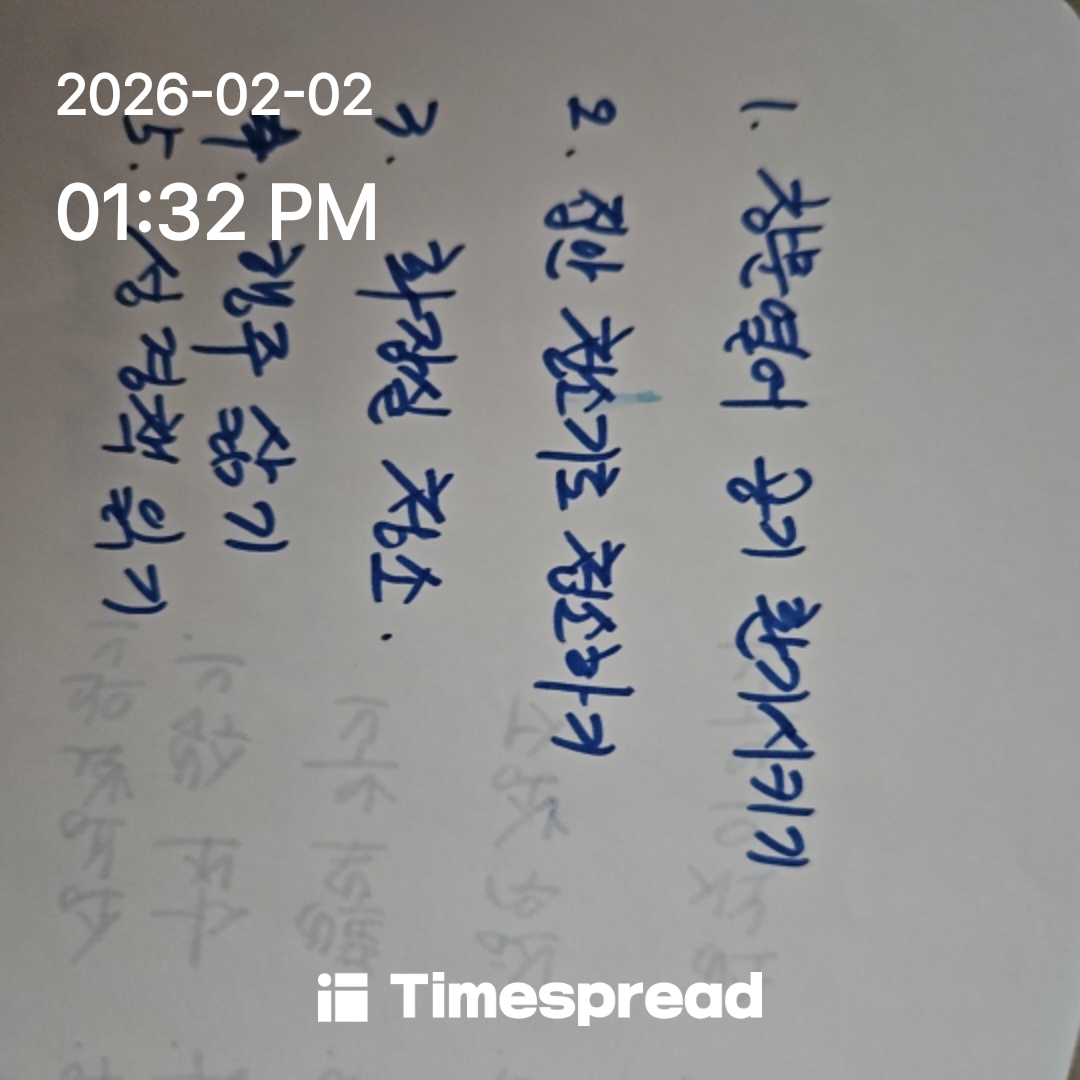 2026-02-02
01:32 PM
1. 창문열어 공기 환기시키기
2. 집안 청소기로 청소하기
3. 화장실 청소.
4. 행주 삶기
5. 성경책 읽기
Timespread